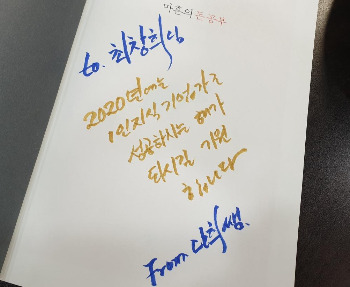 마흔의 돈 공부
to. 최창희님
2020년에는
1인지식 기업가로
성공하시는 해가
되시길 기원
합니다
From. 단희쌤.